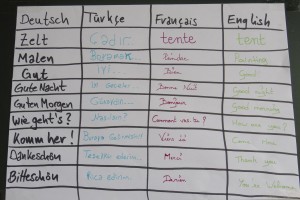 Deutsch Türkçe Français English
Zelt Çadır tente tent
Malen Peindre Painting
Gut Iyi Bien Good
Gute Nacht Bonne Nuit Good night
Guten Morgen Bonjour Good morning
Wie geht's? Nasılsın? Comment vas-tu? How are you?
Komm her! Viens ici Come
Dankeschön Teşekkür ederim Merci Thank you
Bitteschön Rica ederim You're Welcome